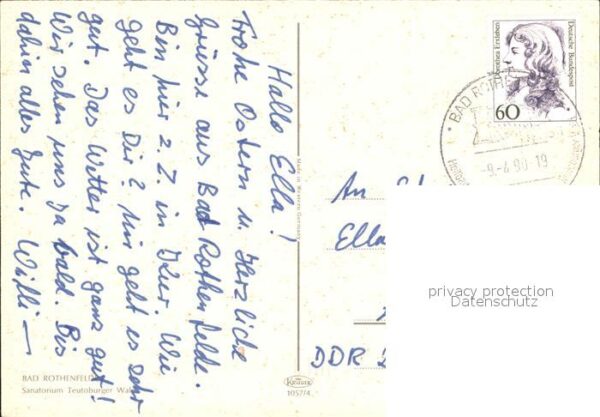 Hallo Ella!
Frohe Ostern u. Herzliche
Grüsse aus Bad Rothenfelde.
Bin hier z. Z. in Kur. Wie
geht es Dir? mir geht es sehr
gut. Das Wetter ist ganz gut!
Wir sehen uns ja bald. Bis
dahin alles Gute. Willi
BAD ROTHENFELDE
Sanatorium Teutoburger Wald
Made in Western Germany
KRÜGER
1057/4
Deutsche Bundespost
Dorothea Erxleben
60
BAD ROTHE
9.-4.90-19
An
Ella
DDR
privacy protection
Datenschutz